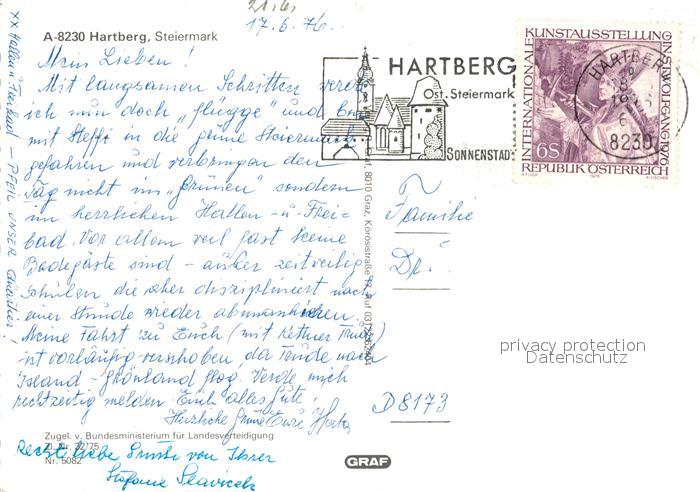 21.6.
17.6.76.
A-8230 Hartberg, Steiermark
Mein Lieben!
Mit langsamen Schritten werde
ich nun doch „flügge" und bin
mit Steffi in die grüne Steiermark
gefahren und verbringen den
Tag nicht im „Grünen" sondern
im herrlichen Hallen-u. Frei-
bad. Vor allem weil fast keine
Badegäste sind - außer zeitweilig
Schulen die aber diszipliniert nach
einer Stunde wieder abmarschieren.
Meine Fahrt zu Euch (mit Trude)
ist vorläufig verschoben, da Trude nach
Island - Grönland flog. Werde mich
rechtzeitig melden. Euch alles Gute!
Herzliche Grüße Eure Herta
Zugel. v. Bundesministerium für Landesverteidigung
Nr. 5082
Recht liebe Grüße von Ihrer
Stefanie Slavicek
XX Hallen u. Freibad - PFEIL UNSER !
HARTBERG
Ost. Steiermark
SONNENSTADT
INTERNATIONALE KUNSTAUSSTELLUNG ÖNB WOLFGANG 1976
6S
REPUBLIK ÖSTERREICH
HARTBERG
8230
8010 Graz, Körösistraße
Familie
Dr.
D 8173
GRAF
privacy protection
Datenschutz